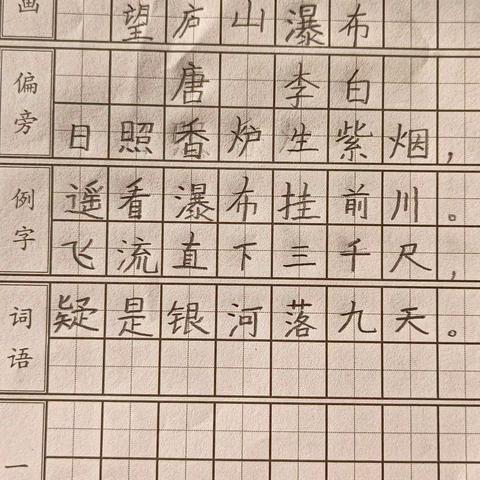 画
望庐山瀑布
偏旁
唐 李白
日照香炉生紫烟，
例字
遥看瀑布挂前川。
飞流直下三千尺，
词语
疑是银河落九天。
一